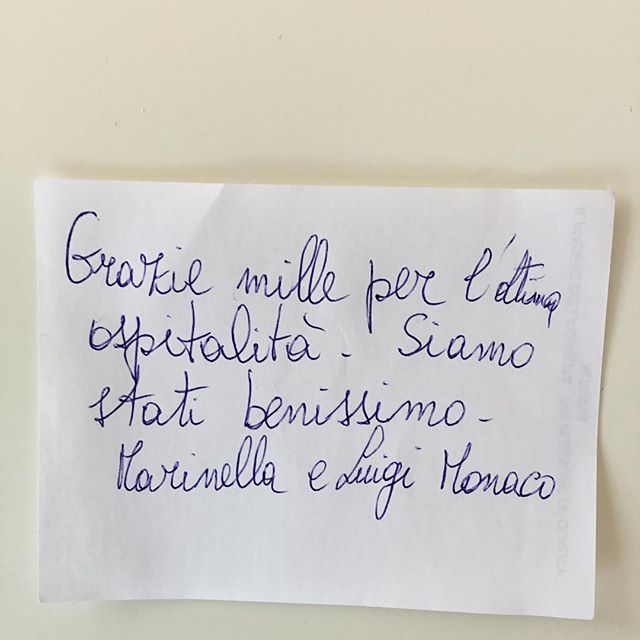 Grazie mille per l'ottima
ospitalità. Siamo
stati benissimo.
Marinella e Luigi Monaco